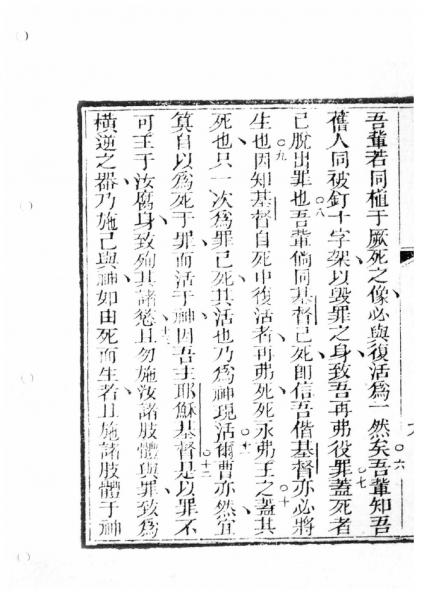 吾輩若同植于厥死之像必與復活爲一然矣吾輩知吾
舊人同被釘十字架以毀罪之身致吾再弗役罪蓋死者
已脫出罪也吾輩倘同基督已死卽信吾偕基督亦必將
生也因知基督自死中復活者再弗死死永弗王之蓋其
死也只一次爲罪已死其活也乃爲神現活爾曹亦然宜
算自以爲死于罪而活于神因吾主耶穌基督是以罪不
可王于汝腐身致殉其諸慾且勿施汝諸肢體與罪致爲
橫逆之器乃施己與神如由死而生者且施諸肢體于神